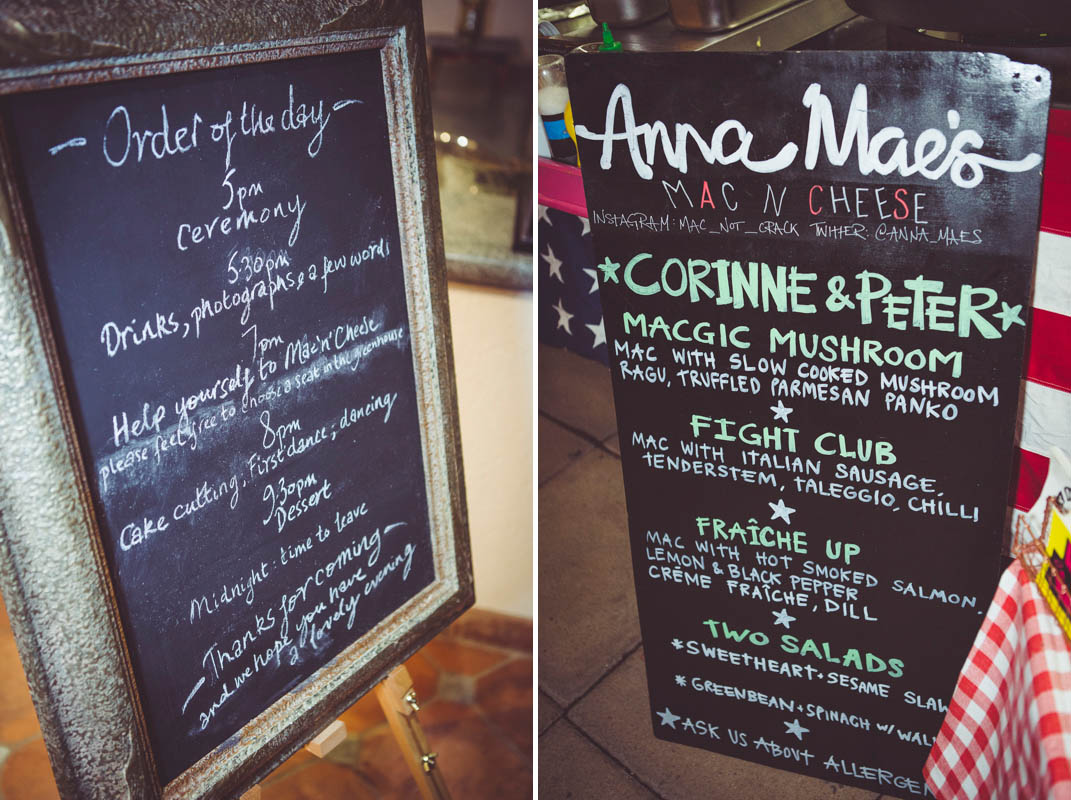 - Order of the day -
5pm
ceremony
5.30pm
Drinks, photographs & a few words
7pm
Help yourself to Mac'n'Cheese
please feel free to choose a seat in the greenhouse
8pm
Cake cutting, First dance, dancing
9.30pm
Dessert
Midnight: time to leave
- Thanks for coming -
and we hope you have
a lovely evening
Anna Mae's
MAC N CHEESE
INSTAGRAM: MAC_NOT_CRACK TWITTER: @ANNA_MAES
CORINNE & PETER
MACGIC MUSHROOM
MAC WITH SLOW COOKED MUSHROOM
RAGU, TRUFFLED PARMESAN PANKO
FIGHT CLUB
MAC WITH ITALIAN SAUSAGE,
TENDERSTEM, TALEGGIO, CHILLI
FRAÎCHE UP
MAC WITH HOT SMOKED SALMON,
LEMON & BLACK PEPPER
CRÈME FRAÎCHE, DILL
TWO SALADS
*SWEETHEART + SESAME SLAW
*GREENBEAN + SPINACH W/ WAL
ASK US ABOUT ALLERGEN